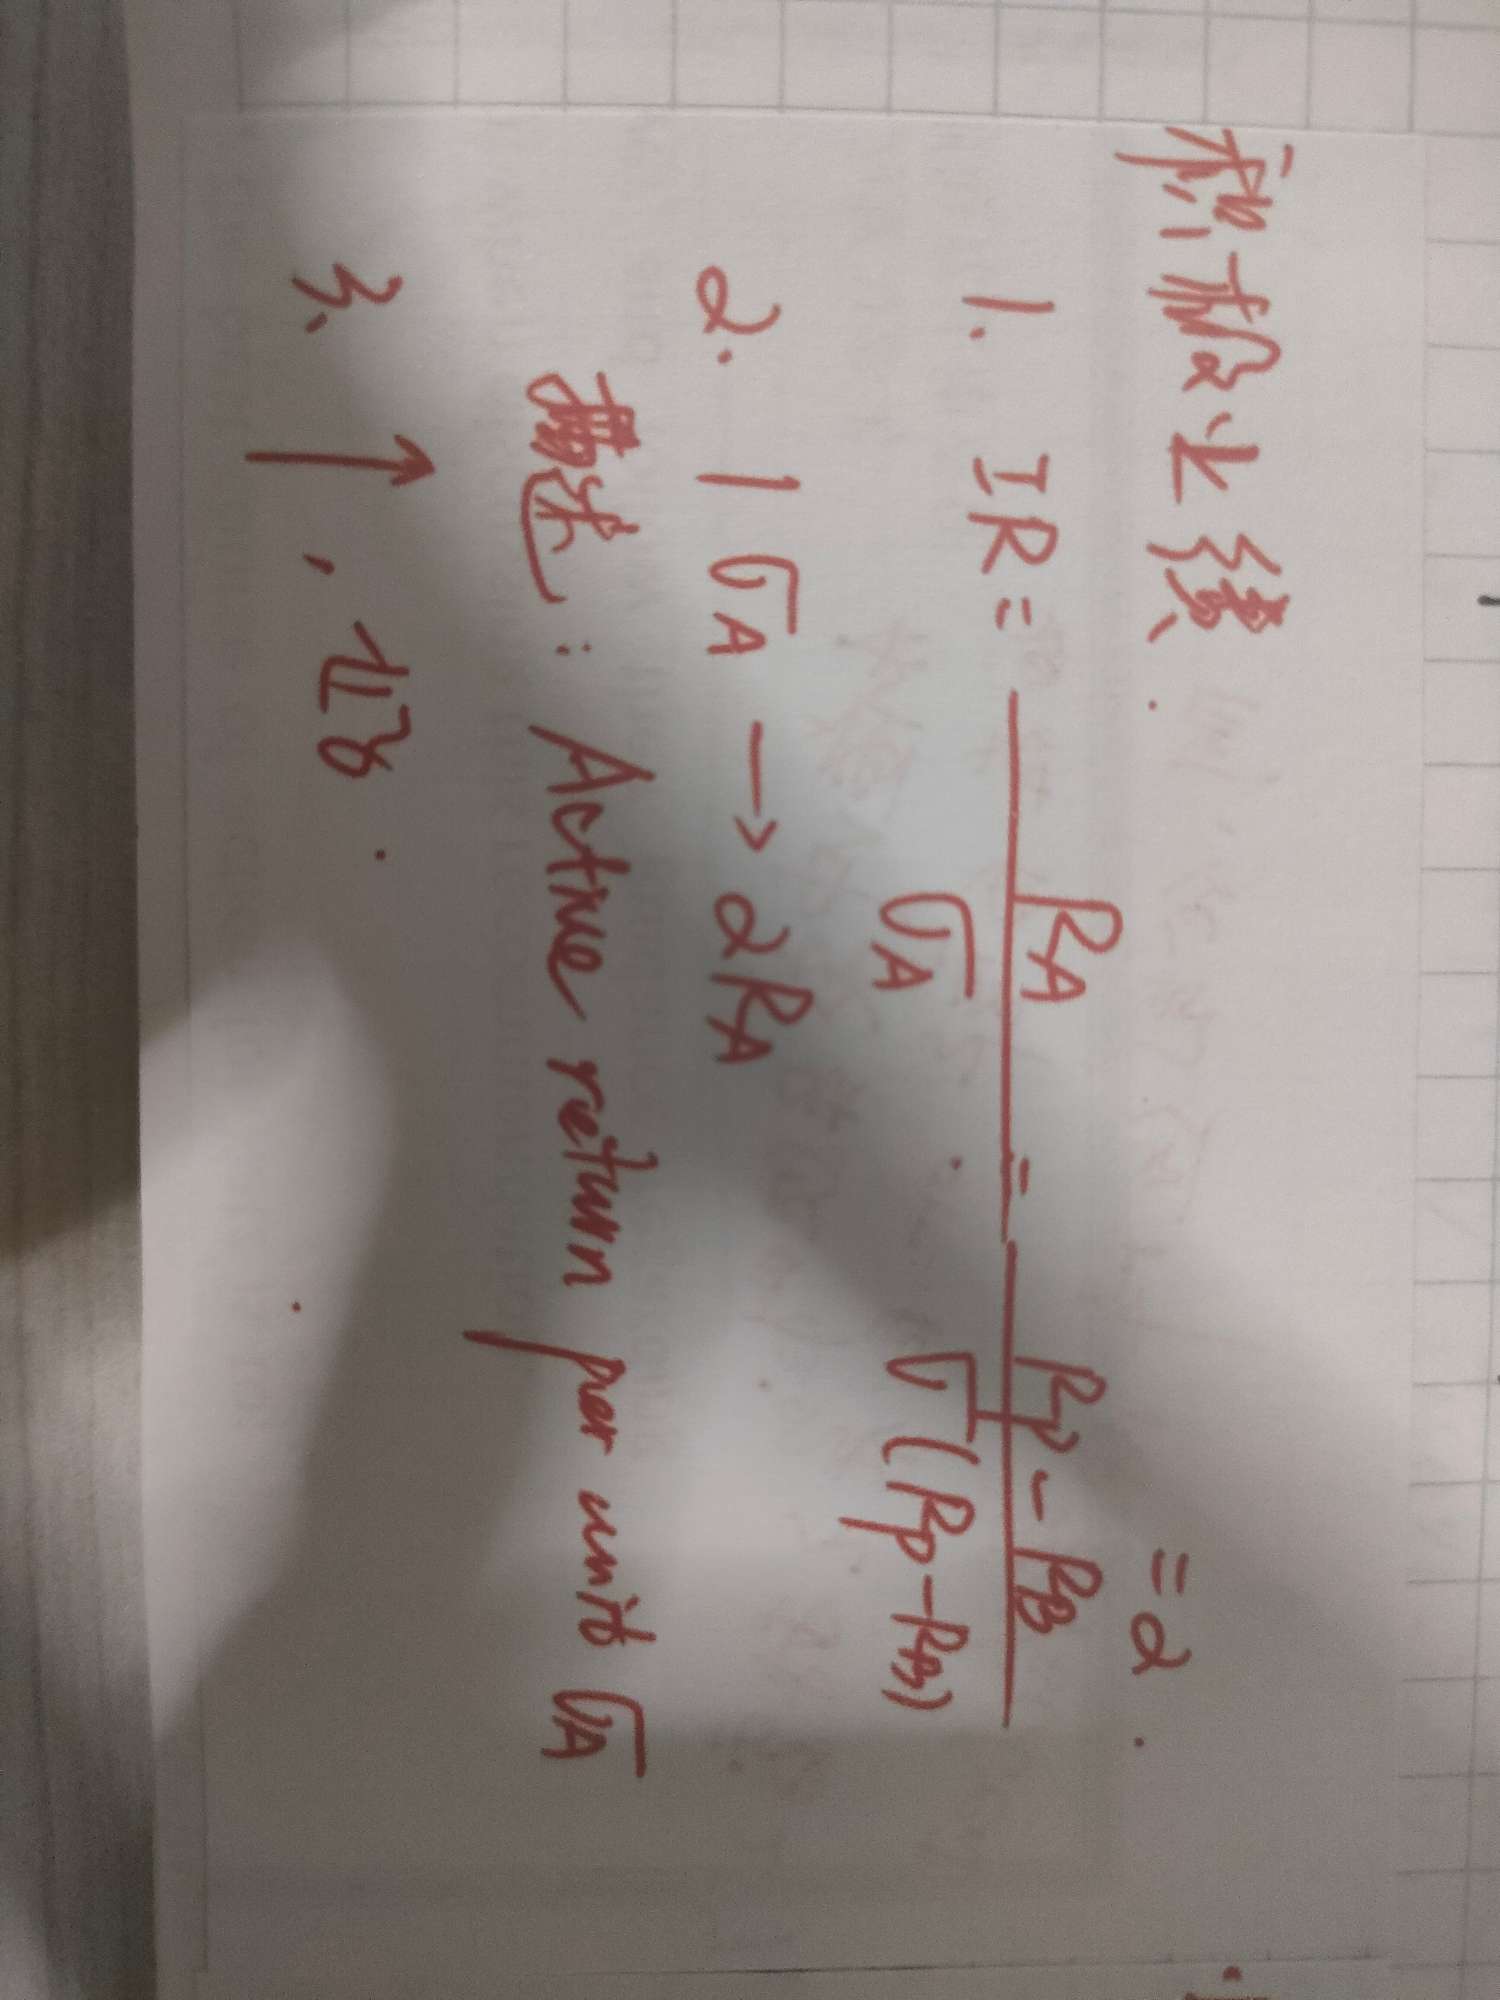 积极业绩.
1. IR = R_A / σ_A = (R_p - R_B) / σ(R_p - R_B) = 2.
2. 1 σ_A → 2 R_A
描述: Active return per unit σ_A
3. ↑,